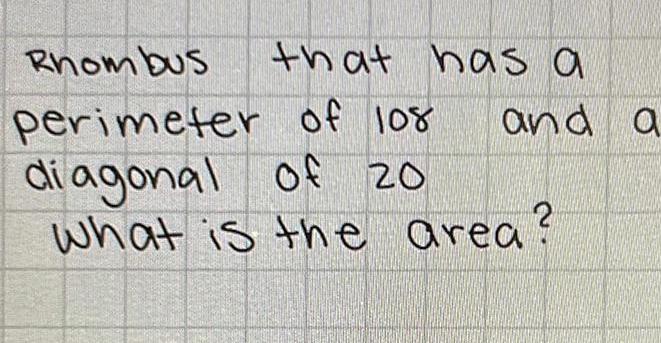 Rhombus that has a
perimeter of 108 and a
diagonal of 20
What is the area?